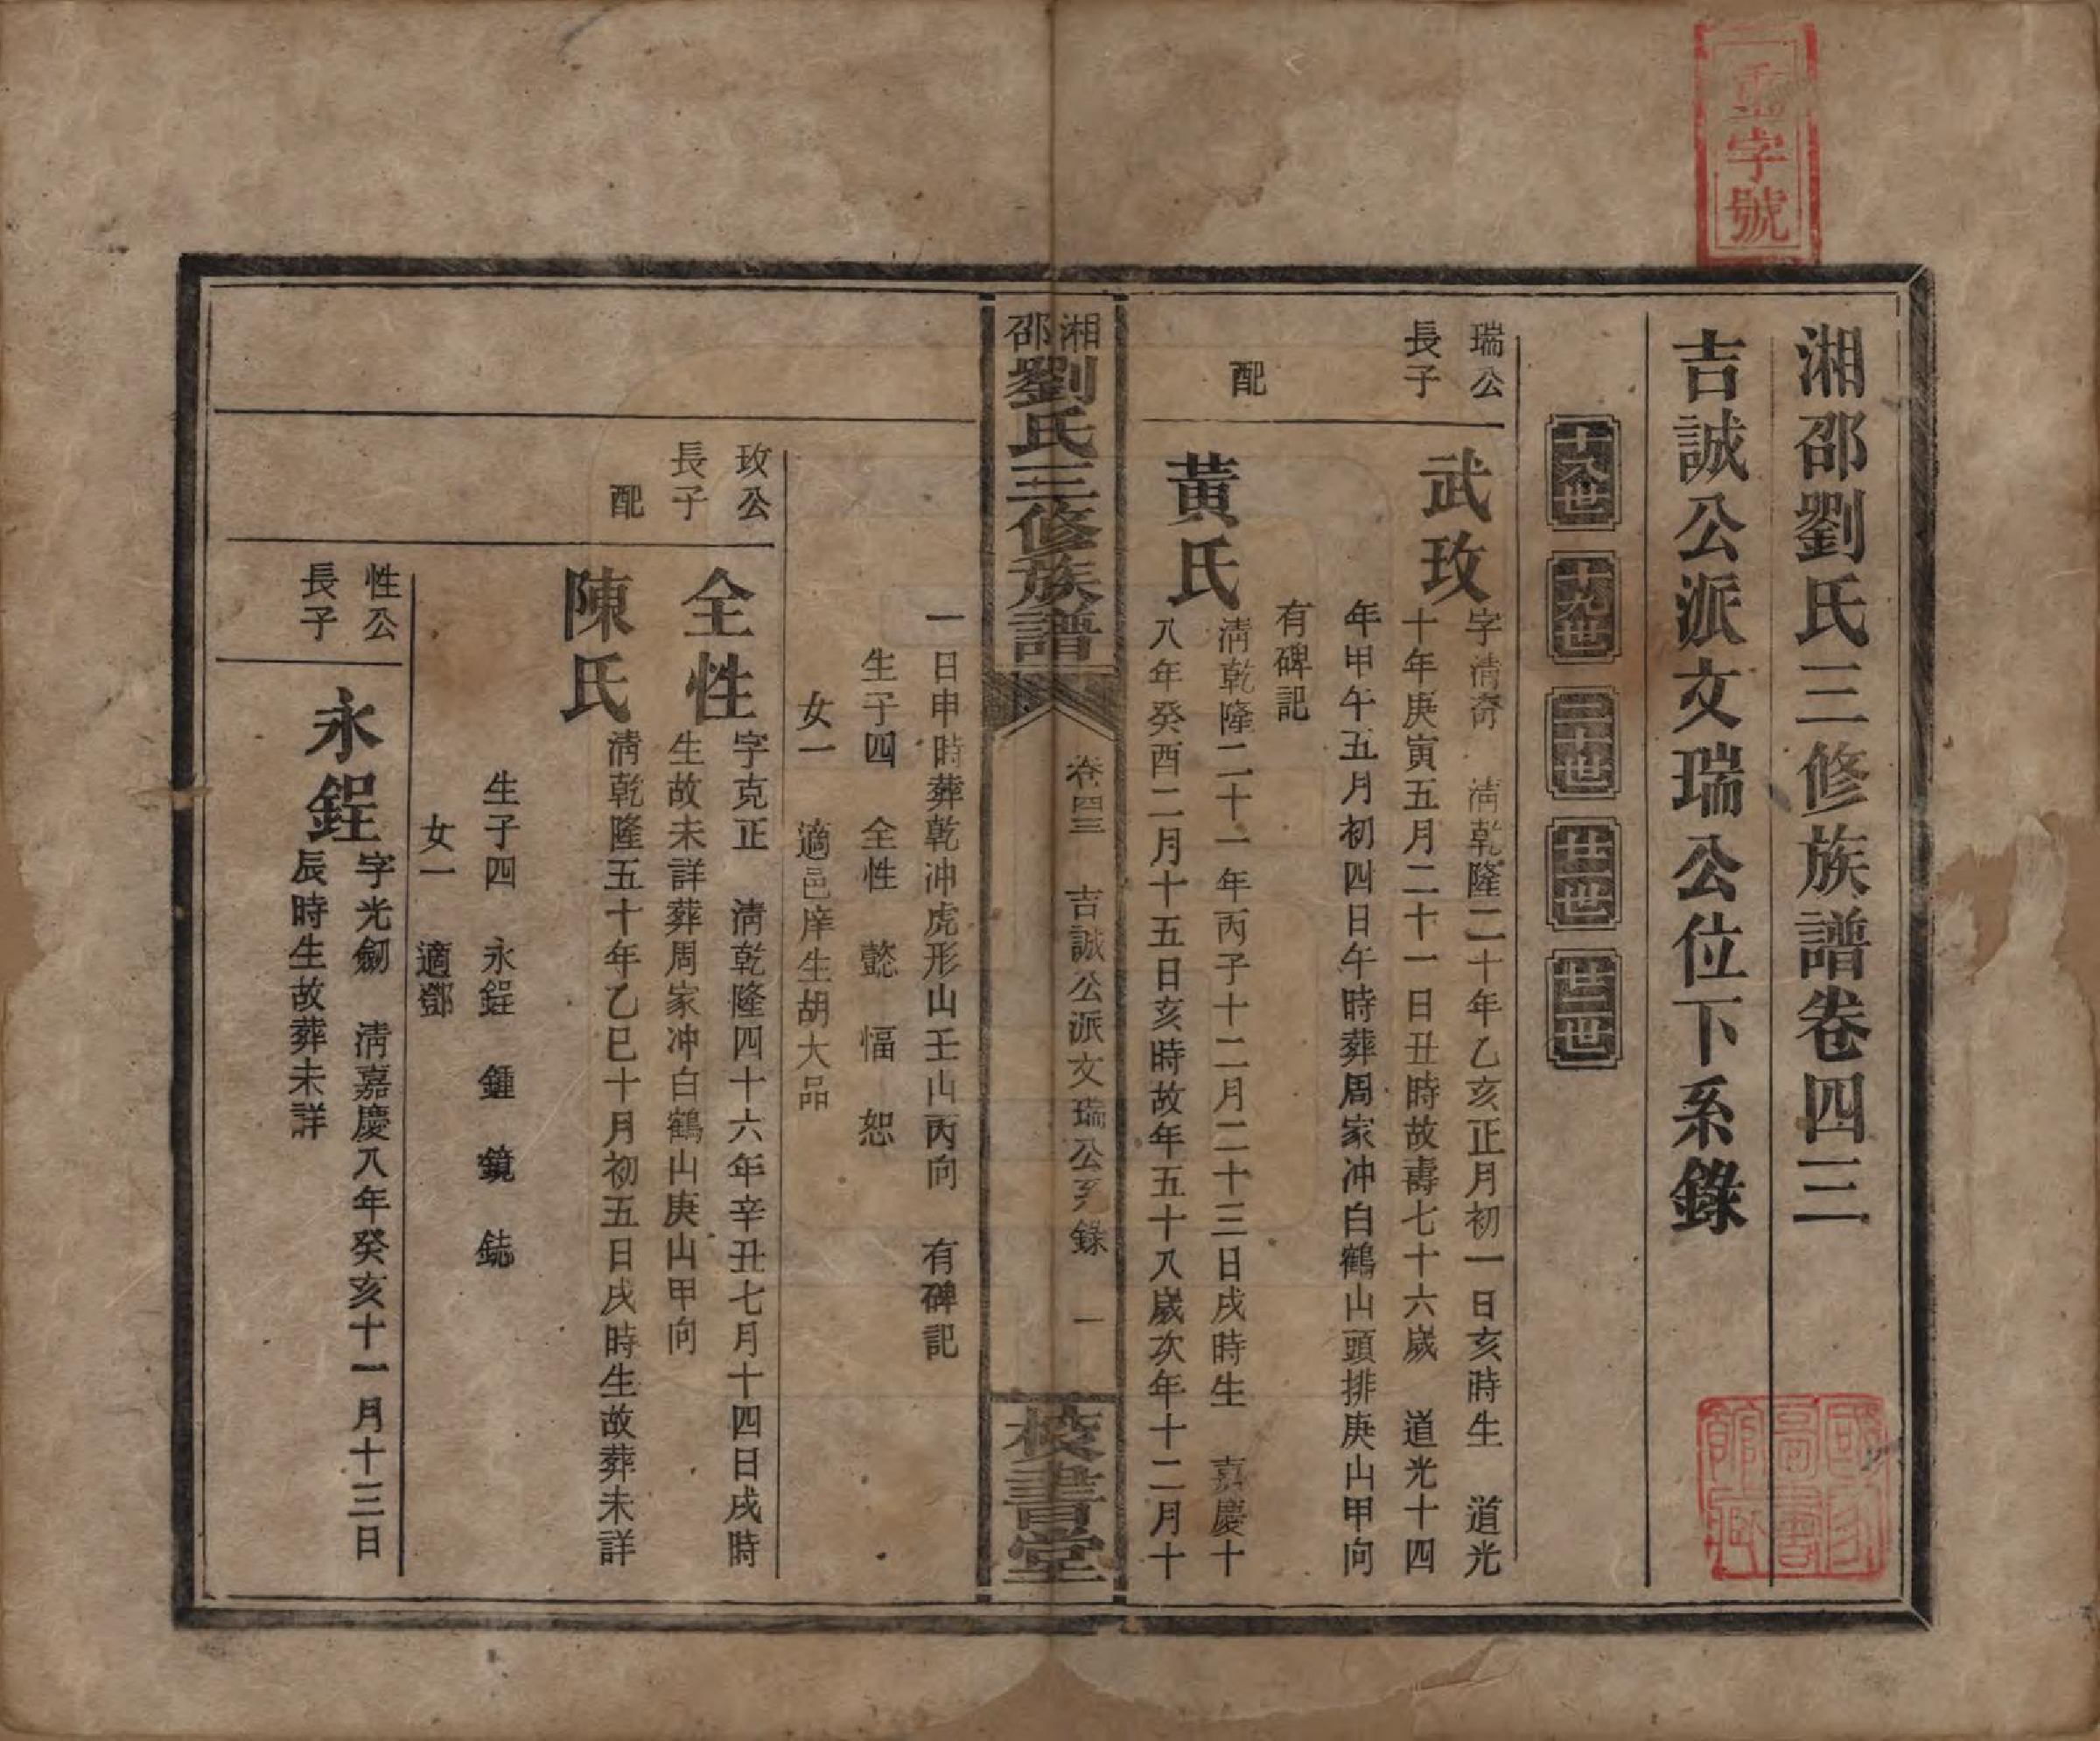 湘邵劉氏三修族譜卷四三
吉誠公派文瑞公位下系錄
十八世
十九世
二十世
廿一世
廿二世
瑞公
長子
武玫
字清奇　清乾隆二十年乙亥正月初一日亥時生　道光
十年庚寅五月二十一日丑時故壽七十六歲　道光十四
年甲午五月初四日午時葬周家冲白鶴山頭排庚山甲向
有碑記
配
黃氏
清乾隆二十一年丙子十二月二十三日戌時生　嘉慶十
八年癸酉二月十五日亥時故年五十八歲次年十二月十
湘邵劉氏三修族譜
卷四三　吉誠公派文瑞公系錄　一
校書堂
一日申時葬乾冲虎形山壬山丙向　有碑記
生子四　全性　懿　愊　恕
女一　適邑庠生胡大品
玫公
長子
全性
字克正　清乾隆四十六年辛丑七月十四日戌時
生故未詳葬周家冲白鶴山庚山甲向
配
陳氏
清乾隆五十年乙巳十月初五日戌時生故葬未詳
生子四　永鋥　鍾　鏡　鋕
女一　適鄧
性公
長子
永鋥
字光劒　清嘉慶八年癸亥十一月十三日
辰時生故葬未詳
字號